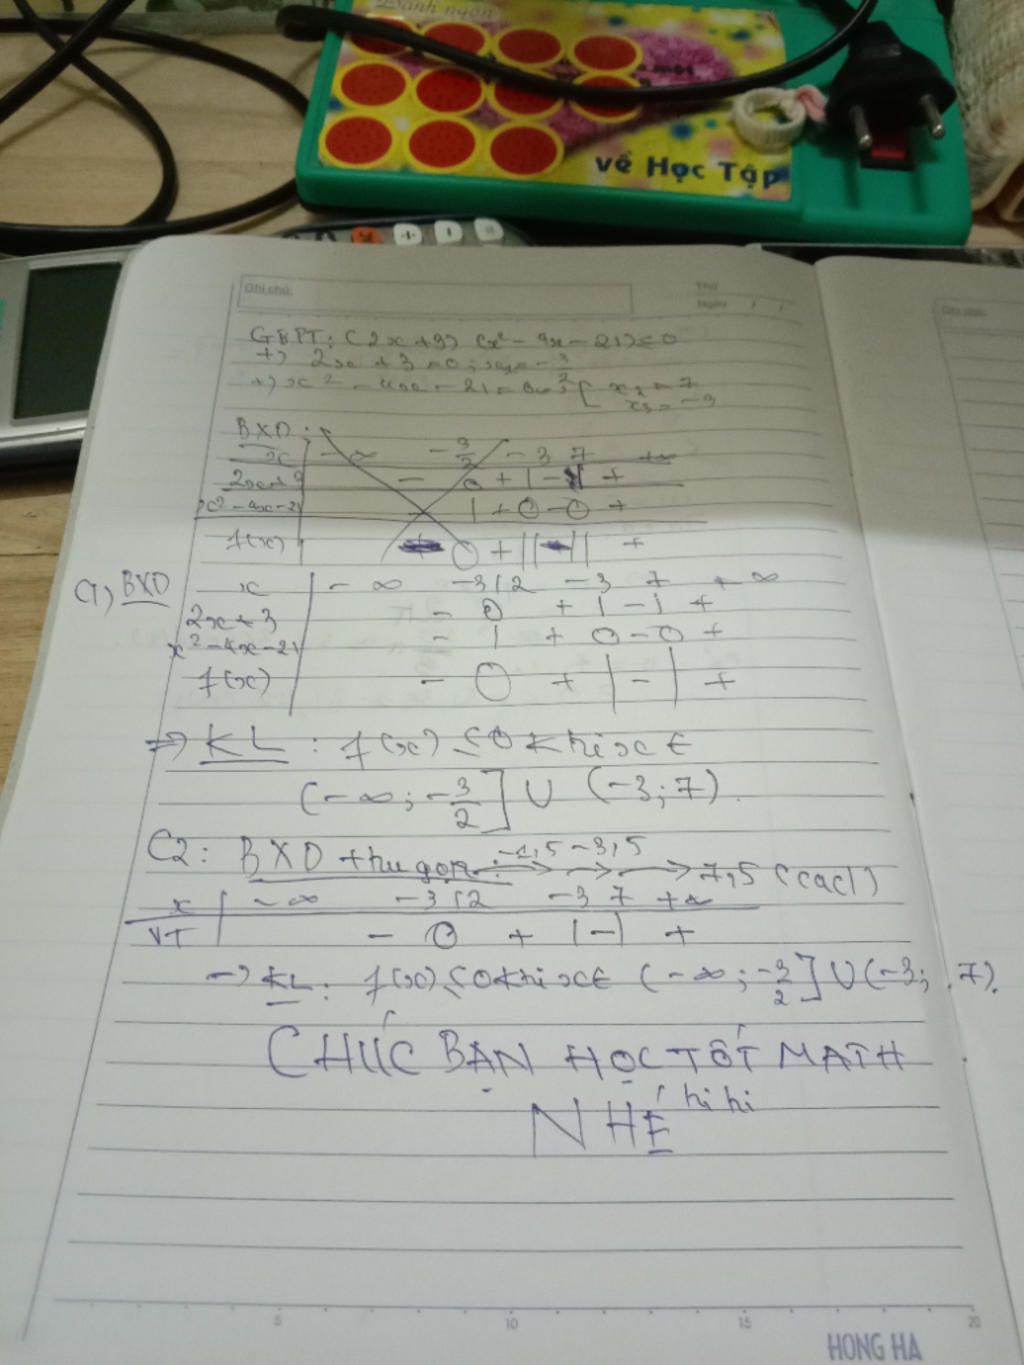 Danh ngôn
về Học Tập
Ghi chú:
Thứ
Ngày
GBPT: (2x+3) (x² - 4x - 21) ≤ 0
+) 2x + 3 = 0
+) x² - 4x - 21 = 0 [ x₂ = 7
x₃ = -3
BXD:
x -∞ -3/2 -3 7 +∞
2x+3 - 0 + | - | +
x² - 4x - 21 - | + 0 - 0 +
f(x) 0 + || || +
C1) BXD x -∞ -3/2 -3 7 +∞
2x+3 - 0 + | - | +
x² - 4x - 21 - | + 0 - 0 +
f(x) - 0 + | - | +
=> KL: f(x) ≤ 0 khi x ∈
(-∞; -3/2] ∪ (-3; 7).
C2: BXD thu gọn: -1,5 -3,5 7,5 (cacl)
x -∞ -3/2 -3 7 +∞
VT - 0 + | - | +
-> KL: f(x) ≤ 0 khi x ∈ (-∞; -3/2] ∪ (-3; 7).
CHÚC BẠN HỌC TỐT MATH
NHÉ hi hi
5 10 15 20
HONG HA